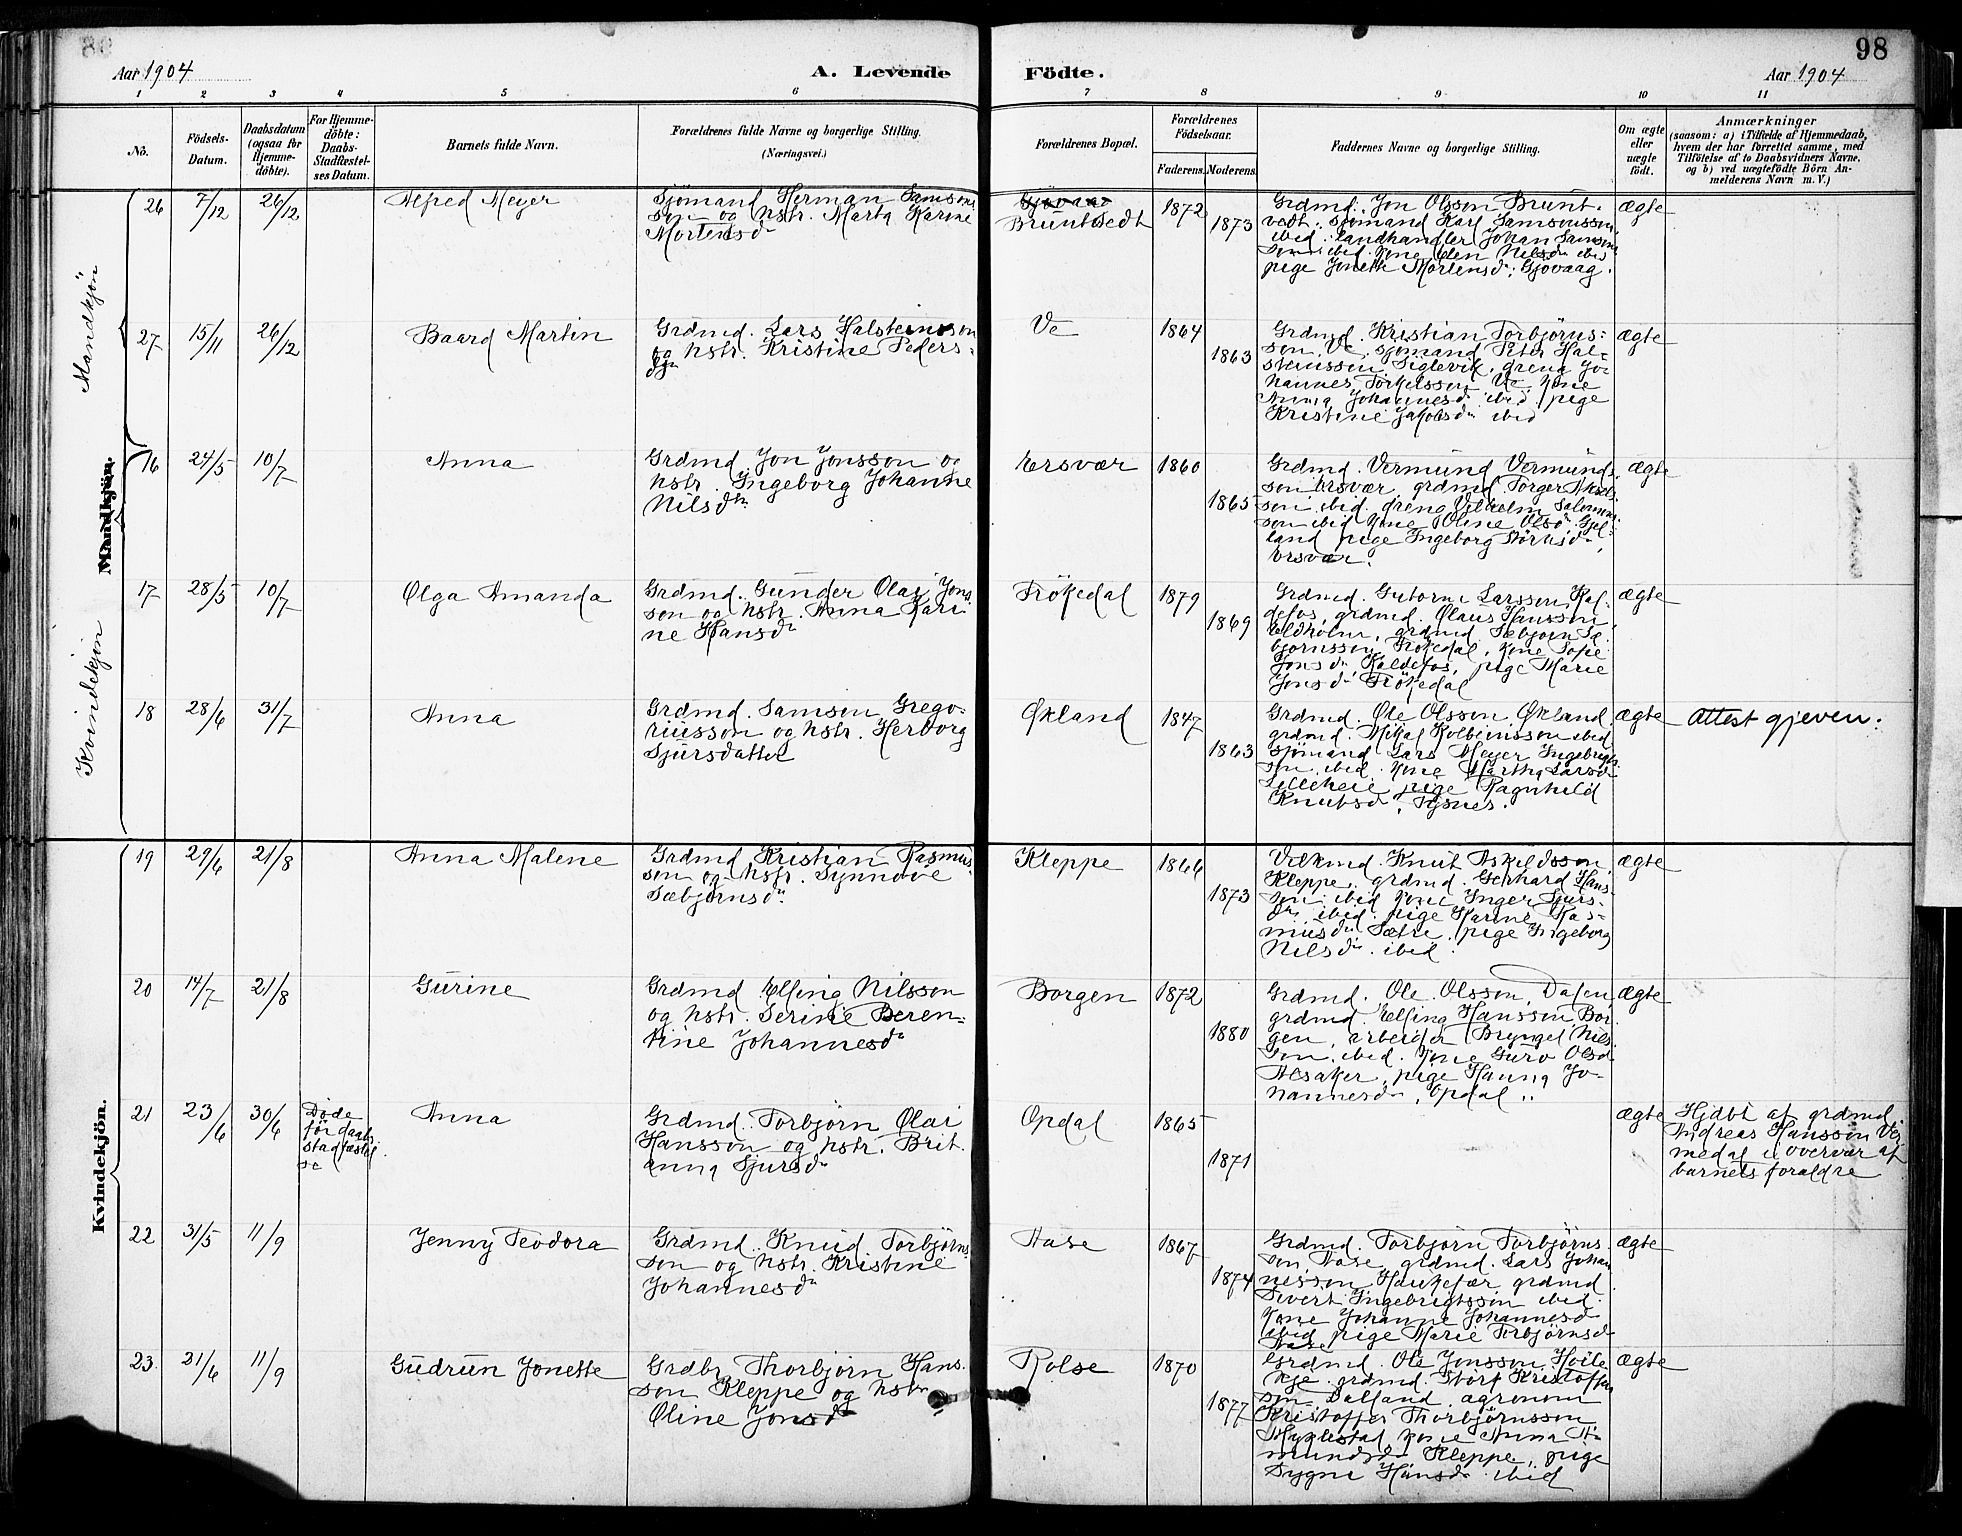 Aar 1904
A. Levende
Födte.
Aar 1904
98
1 2 3 4 5 6 7 8 9 10 11
No.
Födsels-
Datum.
Daabsdatum
(ogsaa for
Hjemme-
döbte).
For Hjemme-
döbte:
Daabs-
Stadfæstel-
ses Datum.
Barnets fulde Navn.
Forældrenes fulde Navne og borgerlige Stilling.
(Næringsvei.)
Forældrenes Bopæl.
Forældrenes
Födselsaar.
Faderens. Moderens.
Faddernes Navne og borgerlige Stilling.
Om ægte
eller
uægte
födt.
Anmærkninger
(saasom: a) i Tilfælde af Hjemmedaab,
hvem der har forrettet samme, med
Tilföielse af to Daabsvidners Navne,
og b) ved uægtefödte Börn An-
melderens Navn m. V.)
Mandkjön
Mandkjön.
Kvindekjön
Kvindekjön.
26 7/12 26/12 Alfred Meyer
Sjömand Herman Samsons
son og hstr. Marta Karine
Mortensdr
Gjövaag
Bruntvedt
1872
1873
Grdmd. Jon Olsson Brunt-
vedt. sjömand Karl Samsonsson
ibid. landhandler Johan Samsons
son ibid. kone Elen Nilsdr ibid
pige Jonette Mortensdr, Gjövaag.
ægte
27 15/11 26/12 Baard Martin
Grdmd. Lars Halsteinsson
og hstr. Kristine Peders-
dr
Ve
1864
1863
Grdmd. Kristian Torbjörns-
son, Ve, sjömand Peter Hal-
steinsson Siglevik, dreng Jo-
hannes Torkelsson Ve kone
Anna Johannesdr ibid. pige
Kristine Jakobsdr ibid
ægte
16 24/5 10/7 Anna
Grdmd. Jon Jonsson og
hstr. Ingeborg Johanne
Nilsdtr
Ersvær
1860
1865
Grdmd. Vermund Vermunds
son Ersvær, grdmd. Torger Aksels
son ibid. dreng Vilhelm Salomon
son ibid kone Oline Olsdr Gjel-
land pige Ingeborg
Ersvær.
ægte
17 28/5 10/7 Olga Amanda
Grdmd. Gunder Olai Jons
son og hstr. Anna Kari
ne Hansdr
Frökedal
1879
1869
Grdmd. Gutorm Larsson Kal-
defos, grdmd. Olaus Hansson,
Eldholm, grdmd. Sæbjorn Sæ-
bjornsson Frökedal, kone Sofie
Jonsdr Kaldefos, pige Marie
Jonsdr Frökedal
ægte
18 28/6 31/7 Anna
Grdmd. Samson Grego-
riusson og hstr. Herborg
Sjursdatter
Økland
1847
1863
Grdmd. Ole Olsson Økland
grdmd. Mikal Kolbeinsson ibid
sjömand Lars Meyer Ingebrigts
son ibid. kone Martha Larsdr
Lilleheie pige Ragnhild
Knutsdr, Tysnes.
ægte
Attest gjeven.
19 29/6 21/8 Anna Malene
Grdmd Kristian Rasmus-
son og hstr. Synnöve
Sæbjörnsdr
Kleppe
1866
1873
Knut Askildsson
Kleppe, grdmd. Gerhard Hans-
son ibid kone Inger Sjurs-
dr, ibid. pige Karine Ras-
musdr Sætre, pige Ingeborg
Nilsdr ibid.
ægte
20 14/7 21/8 Gurine
Grdmd Elling Nilsson
og hstr. Serine Beren-
tine Johannesdr
Borgen
1872
1880
Grdmd. Ole Olsson, Dalen,
grdmd. Elling Hansson Bor-
gen, arbeider Brynjel Nils
son, ibid. kone Guro Olsdr
Alsaker, pige Hanna Jo-
hannesdr, Opdal.
ægte
21 23/6 30/6
Döde
för daabs
stadfæstel
se
Anna
Grdmd. Torbjörn Olai
Hansson og hstr. Brit
anna Sjursdr
Opdal
1865
1871
ægte
Hjdbt af grdmd
Andreas Hansson Ve-
medal i overvær af
barnets foraldre
22 31/5 11/9 Jenny Teodora
Grdmd. Knud Torbjörns
son og hstr. Kristine
Johannesdr
Aase
1867
1874
Grdmd. Torbjorn Torbjörns
son, Aase, grdmd. Lars Johan
nesson Haukefær grdmd
Sivert Ingebrigtsson ibid.
Kone Johanne Johannesdr
ibid pige Marie Torbjörnsdr
Aase
ægte
23. 21/6 11/9 Gudrun Jonette
Grdbr. Thorbjörn Hans-
son Kleppe og hstr
Oline Jonsdr
Rolse
1870
1877
Grdmd. Ole Jonsson, Hoile
kje. grdmd. Störk Kristoffer
son Dalland, agronom
Kristoffer Thorbjörnsson
Myklestad, kone Anna A-
mundsdr Kleppe, pige
Sygni Hansdr ibid
ægte